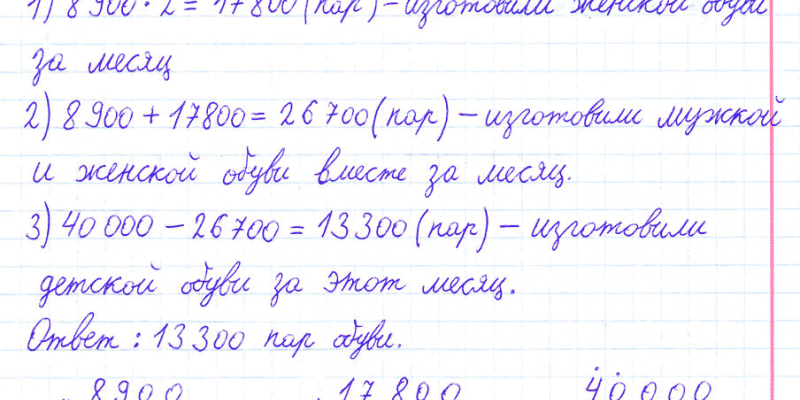 1) 8 900 · 2 = 17 800 (пар) – изготовили женской обуви
за месяц
2) 8 900 + 17800 = 26 700 (пар) – изготовили мужской
и женской обуви вместе за месяц.
3) 40 000 – 26 700 = 13 300 (пар) – изготовили
детской обуви за этот месяц.
Ответ : 13 300 пар обуви.
8900 17 800 40000